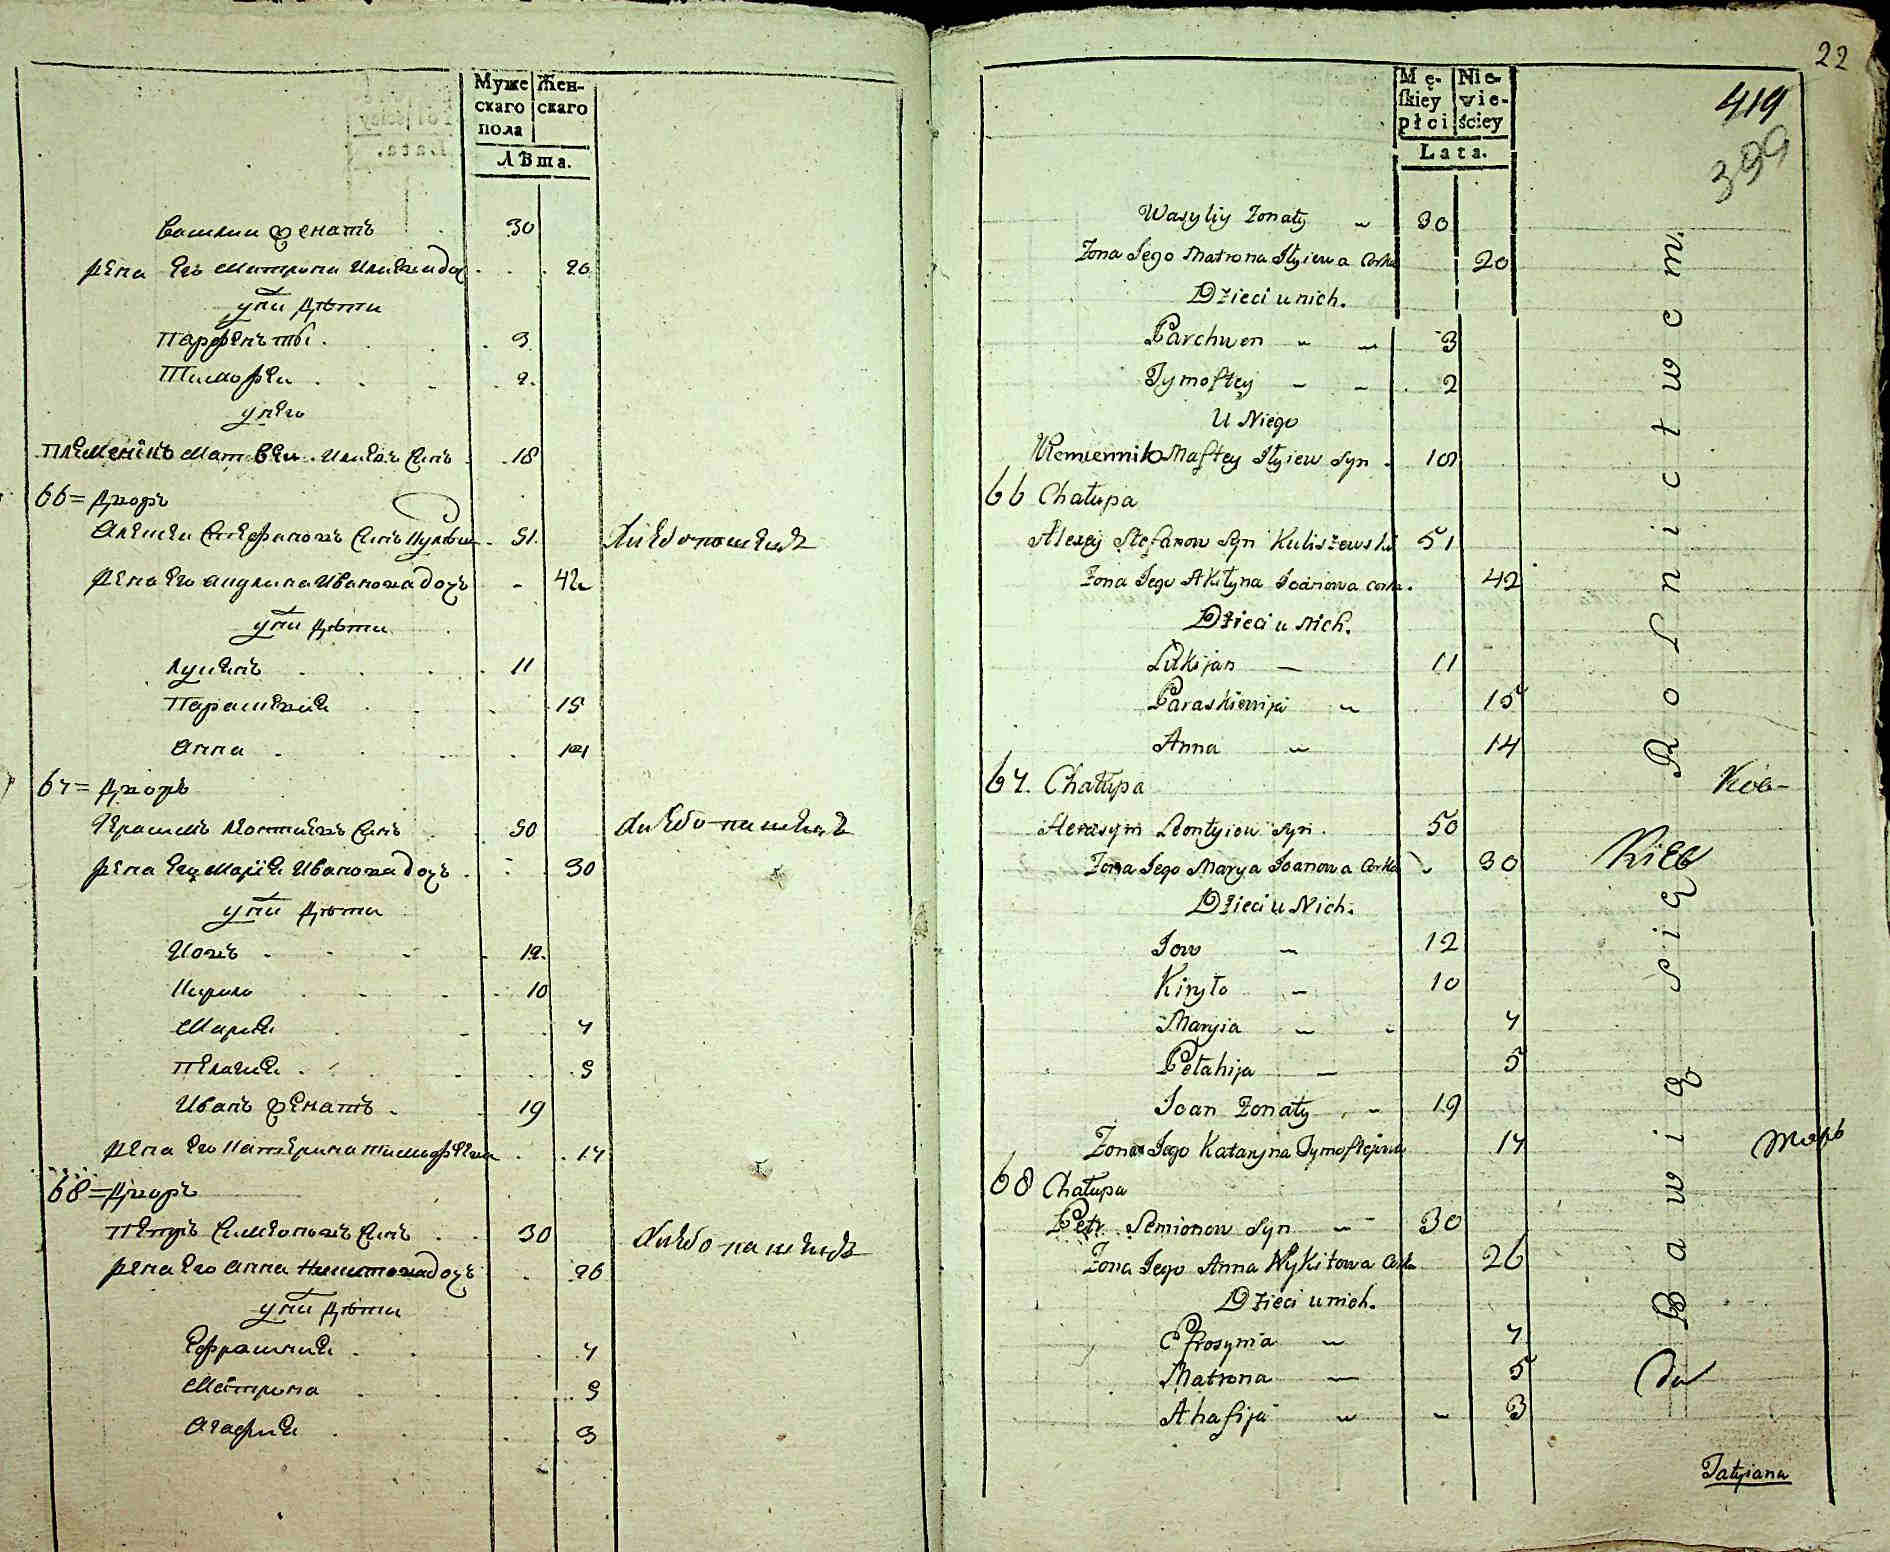 Муже Жен-
скаго скаго
пола
Лѣта.
Василии женатъ 30
жена Его Матрона Илиева доч 20
у них дѣти
Парфентеи 3
Тимофеи 2
у него
племеник Матвеи Илиевъ Синъ 18
66 = Дворъ
Алексеи Стефановъ Синъ Кулѣш 51 хлебопашецъ
жена Его Акилина Иванова дочъ 42
у них дѣти
Лукиянъ 11
Параскевия 15
Анна 14
67 = Дворъ
Герасимъ Леонтиевъ Синъ 50 хлебопашецъ
жена Его Мария Иванова дочъ 30
у них дѣти
Иовъ 12
Кирило 10
Мария 7
Пелагия 5
Иванъ женатъ 19
жена Его Катерина Тимофеева 17
68 = Дворъ
Петръ Симеоновъ Синъ 30 хлебопашецъ
жена Его Анна Никитова дочъ 26
у них дѣти
Ефросиния 7
Матрона 5
Агафия 3
22
Mę- Nie-
skiey wie-
płci ściey
Lata.
419
399
Wasyliy Zonaty 30
Zona Jego Matrona Jłyiewa Corka 20
Dzieci u nich.
Parchwen 3
Tymoftey 2
U Niego
Plemiennik Maftey Jłyiew Syn 18
66 Chałupa
Alexey Stefanow Syn Kuliszewski 51
Zona Jego Akiłyna Joanowa corka 42
Dzieci u Nich.
Lukijan 11
Paraskiewija 15
Anna 14
67. Chałupa
Herasym Leontyiew Syn 50
Zona Jego Marya Joanowa Corka 30
Dzieci u Nich.
Jow 12
Kiryło 10
Maryia 7
Pełahija 5
Joan Zonaty 19
Zona Jego Kataryna Tymoftejewa 17
68 Chałupa
Petr Semionow Syn 30
Zona Jego Anna Nykitowa Corka 26
Dzieci u nich.
Efrosynia 7
Matrona 5
Ahafija 3
Bawią się Rolnictwem
Tatyiana